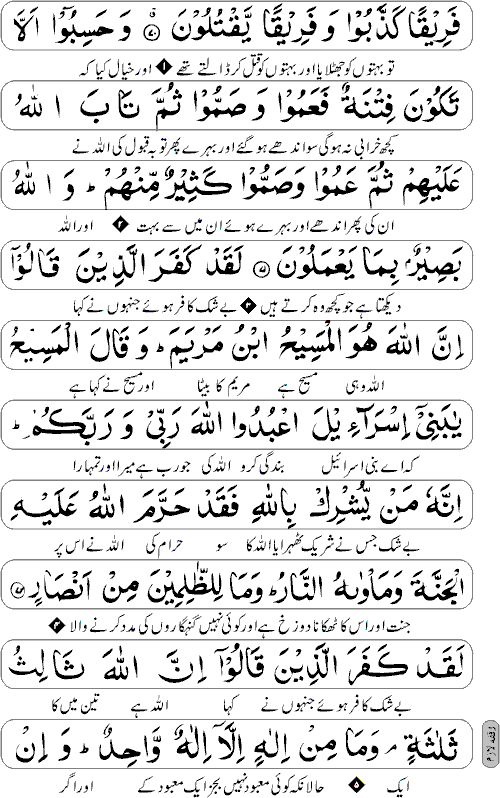 فَرِيْقًا كَذَّبُوْا وَ فَرِيْقًا يَّقْتُلُوْنَ ﴿۷۰﴾ وَ حَسِبُوْۤا اَلَّا
تو بہتوں کو جھٹلایا اور بہتوں کو قتل کر ڈالتے تھے ◆۱ اور خیال کیا کہ
تَكُوْنَ فِتْنَةٌ فَعَمُوْا وَ صَمُّوْا ثُمَّ تَابَ اللّٰهُ
کچھ خرابی نہ ہوگی سو اندھے ہو گئے اور بہرے پھر توبہ قبول کی اللہ نے
عَلَيْهِمْ ثُمَّ عَمُوْا وَصَمُّوْا كَثِيْرٌ مِّنْهُمْ ؕ وَ اللّٰهُ
ان کی پھر اندھے اور بہرے ہوئے ان میں سے بہت ◆۲ اور اللہ
بَصِيْرٌۢ بِمَا يَعْمَلُوْنَ ﴿۷۱﴾ لَقَدْ كَفَرَ الَّذِيْنَ قَالُوْۤا
دیکھتا ہے جو کچھ وہ کرتے ہیں ◆۳ بے شک کافر ہوئے جنہوں نے کہا
اِنَّ اللّٰهَ هُوَ الْمَسِيْحُ ابْنُ مَرْيَمَ ؕ وَ قَالَ الْمَسِيْحُ
اللہ وہی مسیح ہے مریم کا بیٹا اور مسیح نے کہا ہے
يٰبَنِيْۤ اِسْرَآءِيْلَ اعْبُدُوا اللّٰهَ رَبِّيْ وَ رَبَّكُمْ ؕ
کہ اے بنی اسرائیل بندگی کرو اللہ کی جو رب ہے میرا اور تمہارا
اِنَّهٗ مَنْ يُّشْرِكْ بِاللّٰهِ فَقَدْ حَرَّمَ اللّٰهُ عَلَيْهِ
بے شک جس نے شریک ٹھہرایا اللہ کا سو حرام کی اللہ نے اس پر
الْجَنَّةَ وَمَاْوٰىهُ النَّارُ ؕ وَمَا لِلظّٰلِمِيْنَ مِنْ اَنْصَارٍ ﴿۷۲﴾
جنت اور اس کا ٹھکانا دوزخ ہے اور کوئی نہیں گنہگاروں کی مدد کرنے والا ◆۴
لَقَدْ كَفَرَ الَّذِيْنَ قَالُوْۤا اِنَّ اللّٰهَ ثَالِثُ
بے شک کافر ہوئے جنہوں نے کہا اللہ ہے تین میں کا
ثَلٰثَةٍ ۘ وَمَا مِنْ اِلٰهٍ اِلَّاۤ اِلٰهٌ وَّاحِدٌ ؕ وَ اِنْ
وقف لازم
ایک ◆۵ حالانکہ کوئی معبود نہیں بجز ایک معبود کے اور اگر